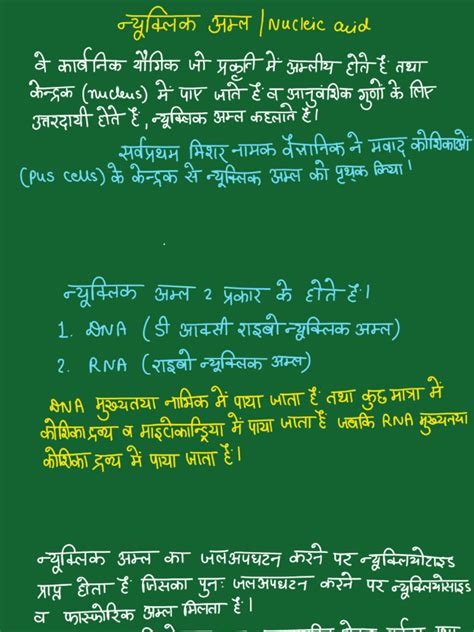 न्यूक्लिक अम्ल / Nucleic acid
वे कार्बनिक यौगिक जो प्रकृति में अम्लीय होते हैं तथा
केन्द्रक (nucleus) में पाए जाते हैं व आनुवंशिक गुणों के लिए
उत्तरदायी होते हैं, न्यूक्लिक अम्ल कहलाते हैं।
सर्वप्रथम मिशर नामक वैज्ञानिक ने मवाद कोशिकाओं
(Pus cells) के केन्द्रक से न्यूक्लिक अम्ल को पृथक किया।
न्यूक्लिक अम्ल 2 प्रकार के होते हैं।
1. DNA (डी आक्सी राइबो न्यूक्लिक अम्ल)
2. RNA (राइबो न्यूक्लिक अम्ल)
DNA मुख्यतया नाभिक में पाया जाता है तथा कुछ मात्रा में
कोशिका द्रव्य व माइटोकान्ड्रिया में पाया जाता है जबकि RNA मुख्यतया
कोशिका द्रव्य में पाया जाता है।
न्यूक्लिक अम्ल का जलअपघटन करने पर न्यूक्लियोटाइड
प्राप्त होता है जिसका पुनः जलअपघटन करने पर न्यूक्लियोसाइड
व फास्फोरिक अम्ल मिलता है।